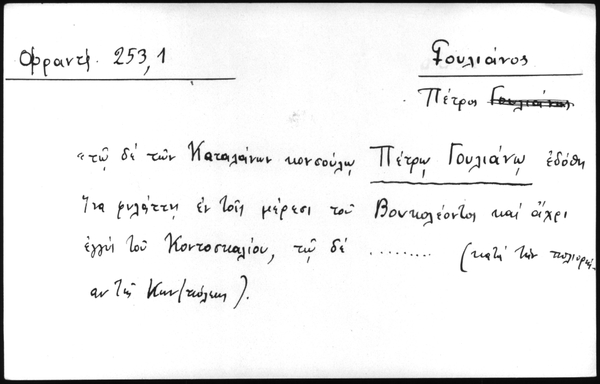 Φραντζ. 253,1
Γουλιάνος
Πέτρος Γουλιάνος
"τῷ δὲ τῶν Καταλάνων κονσούλῳ Πέτρῳ Γουλιάνῳ ἐδόθη
ἵνα φυλάττῃ ἐν τοῖς μέρεσι τοῦ Βουκολέοντος καὶ ἄχρι
ἐγγὺς τοῦ Κοντοσκαλίου, τῷ δὲ ......... (κατὰ τὴν πολιορκί-
αν τῆς Κων/πόλεως).